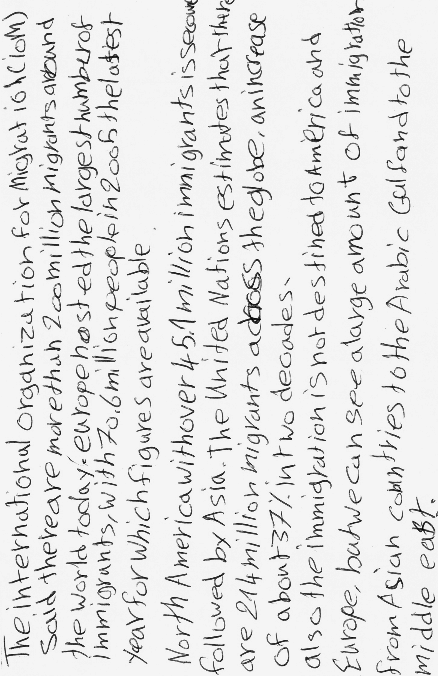 The international organization for Migration (ioM)
Said there are more than 200 million migrants around
the world today. europe hosted the largest number of
immigrants, with 70.6 million people in 2005 the latest
year for which figures are available.
North America with over 45.1 million immigrants is second
followed by Asia. The United Nations estimates that there
are 214 million migrants across the globe, an increase
of about 37% in two decades.
also the immigration is not destined to America and
Europe, but we can see a large amount of immigration
from Asian countries to the Arabic Gulf and to the
middle east.